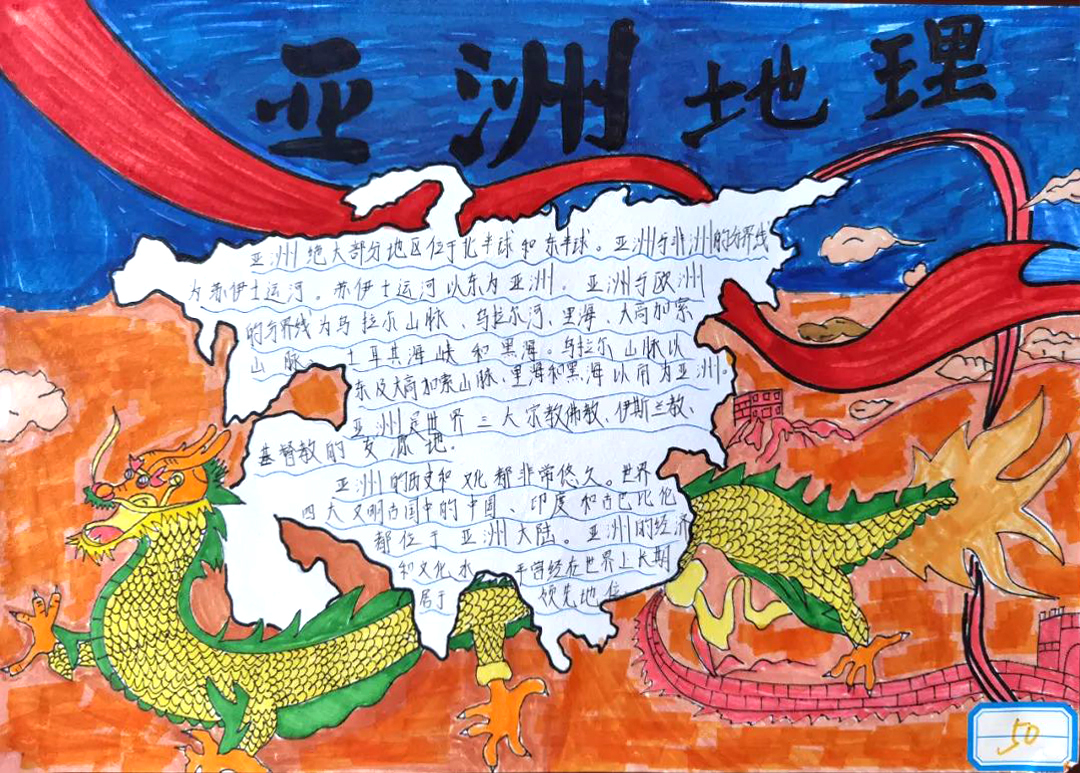 亚洲地理
亚洲绝大部分地区位于北半球和东半球。亚洲与非洲的分界线
为苏伊士运河。苏伊士运河以东为亚洲。亚洲与欧洲
的分界线为乌拉尔山脉、乌拉尔河、里海、大高加索
山脉、土耳其海峡和黑海。乌拉尔山脉以
东及大高加索山脉、里海和黑海以南为亚洲。
亚洲是世界三大宗教佛教、伊斯兰教、
基督教的发源地.
亚洲的历史和文化都非常悠久。世界
四大文明古国中的中国、印度和古巴比伦
都位于亚洲大陆。亚洲的经济
和文化水平曾经在世界上长期
居于领先地位
50